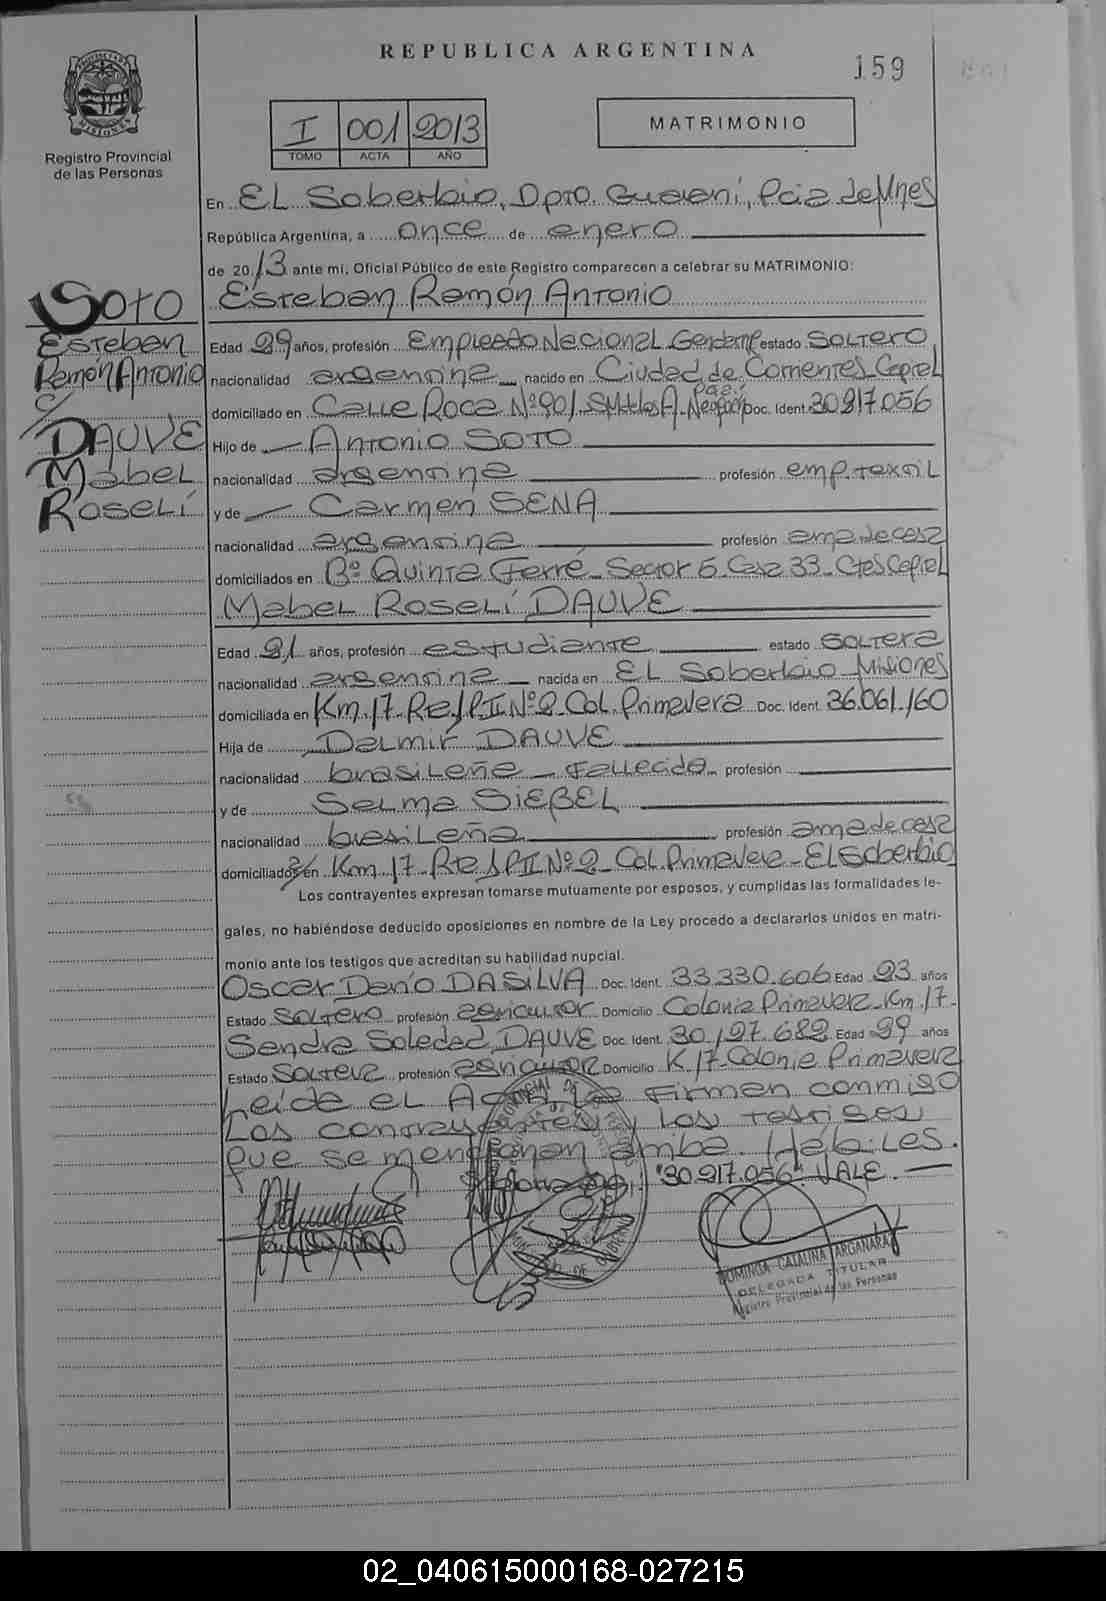 REPUBLICA ARGENTINA
159
PROVINCIA DE MISIONES
Registro Provincial
de las Personas
I 001 2013
TOMO ACTA AÑO
MATRIMONIO
En El Soberbio, Dpto. Guaraní, Pcia de Mnes
República Argentina, a once de enero
de 2013 ante mi, Oficial Público de este Registro comparecen a celebrar su MATRIMONIO:
SOTO
Esteban
Ramón Antonio
c/
DAUVE
Mabel
Roselí
Esteban Ramón Antonio
Edad 29 años, profesión Empleado Nacional Gendarme estado SOLTERO
nacionalidad argentina nacido en Ciudad de Corrientes Capital
domiciliado en Calle Roca Nº 901 Doc. Ident. 30.917.056
Hijo de Antonio SOTO
nacionalidad argentina profesión emp. textil
y de Carmen SENA
nacionalidad argentina profesión ama de casa
domiciliados en Bº Quinta Ferré - Sector 5. Casa 33 - Ctes Capital
Mabel Roselí DAUVE
Edad 21 años, profesión estudiante estado SOLTERA
nacionalidad argentina nacida en El Soberbio Misiones
domiciliada en Km. 17. Nº 2 Col. Primavera Doc. Ident. 36.061.160
Hija de Delmir DAUVE
nacionalidad brasileña - Fallecido profesión
y de Selma SIEBEL
nacionalidad brasileña profesión ama de casa
domiciliados en Km. 17 Nº 2 Col. Primavera - El Soberbio
Los contrayentes expresan tomarse mutuamente por esposos, y cumplidas las formalidades le-
gales, no habiéndose deducido oposiciones en nombre de la Ley procedo a declararlos unidos en matri-
monio ante los testigos que acreditan su habilidad nupcial.
Oscar Darío DA SILVA Doc. Ident. 33.330.606 Edad 23 años
Estado SOLTERO profesión agricultor Domicilio Colonia Primavera - Km. 17 -
Sandra Soledad DAUVE Doc. Ident. 30.197.682 Edad 29 años
Estado Soltera profesión agricultor Domicilio K. 17 - Colonia Primavera
Leída el Acta la Firman conmigo
Los contrayentes y los testigos
que se mencionan arriba. Hábiles.
"30.917.056" VALE.
DOMINGA CATALINA ARGAÑARAZ
DELEGADA TITULAR
Registro Provincial de las Personas
02_040615000168-027215